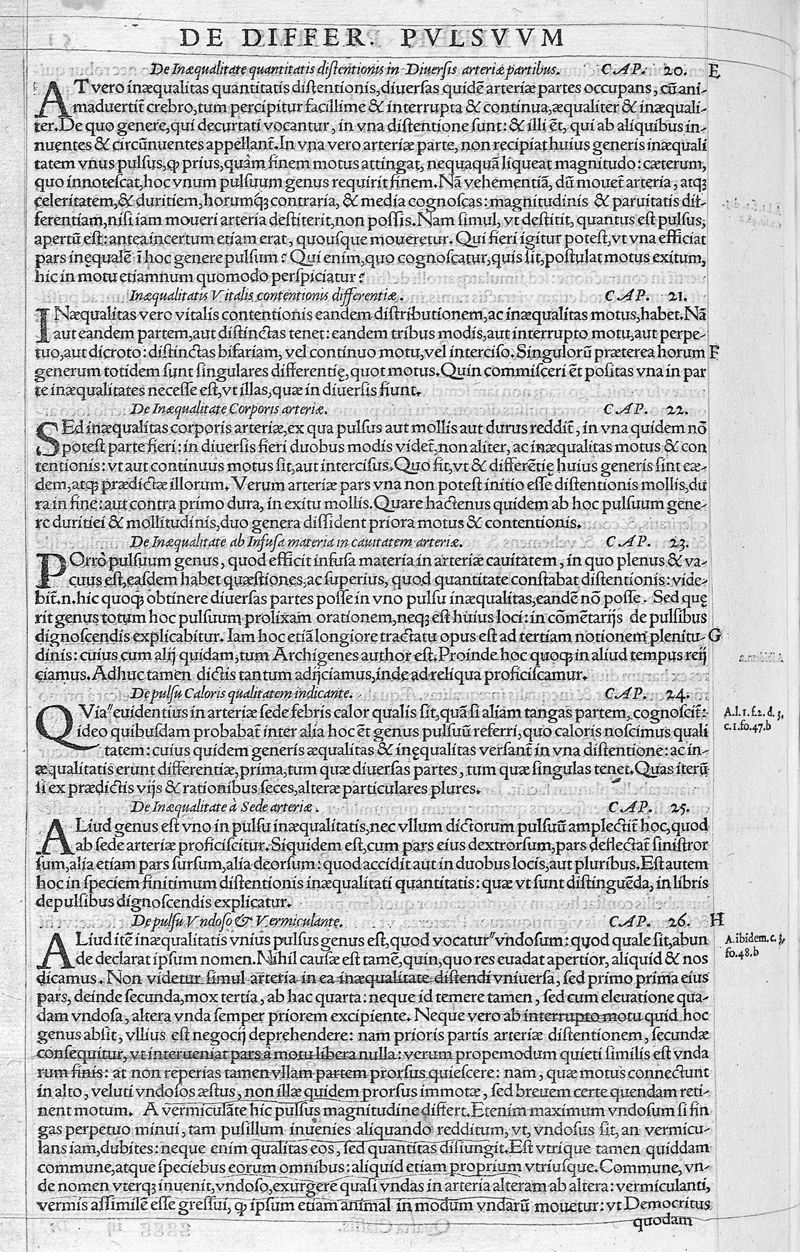 DE DIFFER. PVLSVVM
De Inæqualitate quantitatis distentionis in Diuersis arteriæ partibus. CAP. 20. E
AT vero inæqualitas quantitatis distentionis, diuersas quidē arteriæ partes occupans, cū ani-
maduertit̄ crebro, tum percipitur facillime & interrupta & continua, æqualiter & inæquali-
ter. De quo genere, qui decurtati vocantur, in vna distentione sunt: & illi ēt, qui ab aliquibus in-
nuentes & circūnuentes appellant̄. In vna vero arteriæ parte, non recipiat huius generis inæquali
tatem vnus pulsus, ꝙ prius, quàm finem motus attingat, nequaquā liqueat magnitudo: cæterum,
quo innotescat, hoc vnum pulsuum genus requirit finem. Nā vehementiā, dū mouet̄ arteria, atqꝫ
celeritatem, & duritiem, horumqꝫ contraria, & media cognoscas: magnitudinis & paruitatis dif-
ferentiam, nisi iam moueri arteria destiterit, non possis. Nam simul, vt destitit, quantus est pulsus,
apertū est: antea incertum etiam erat, quousque moueretur. Qui fieri igitur potest, vt vna efficiat
pars inęqualē ī hoc genere pulsum? Qui enim, quo cognoscatur, quis sit, postulat motus exitum,
hic in motu etiamnum quomodo perspiciatur?
Inæqualitatis Vitalis contentionis differentiæ. CAP. 21.
INæqualitas vero vitalis contentionis eandem distributionem, ac inæqualitas motus, habet. Nā
aut eandem partem, aut distinctas tenet: eandem tribus modis, aut interrupto motu, aut perpe-
tuo, aut dicroto: distinctas bifariam, vel continuo motu, vel interciso. Singulorū præterea horum F
generum totidem sunt singulares differentię, quot motus. Quin commisceri ēt positas vna in par
te inæqualitates necesse est, vt illas, quæ in diuersis fiunt.
De Inæqualitate Corporis arteriæ. CAP. 22.
SEd inæqualitas corporis arteriæ, ex qua pulsus aut mollis aut durus reddit̄, in vna quidem nō
potest parte fieri: in diuersis fieri duobus modis videt̄, non aliter, ac inæqualitas motus & con
tentionis: vt aut continuus motus sit, aut intercisus. Quo fit, vt & differētię huius generis sint eæ-
dem, atqꝫ prædictæ illorum. Verum arteriæ pars vna non potest initio esse distentionis mollis, du
ra in fine: aut contra primo dura, in exitu mollis. Quare hactenus quidem ab hoc pulsuum gene-
re duritiei & mollitudinis, duo genera dissident priora motus & contentionis.
De Inæqualitate ab Infusa materia in cauitatem arteriæ. CAP. 23.
POrrò pulsuum genus, quod efficit infusa materia in arteriæ cauitatem, in quo plenus & va-
cuus est, easdem habet quæstiones, ac superius, quod quantitate constabat distentionis: vide-
bit̄. n. hic quoqꝫ obtinere diuersas partes posse in vno pulsu inæqualitas, eandē nō posse. Sed quę
rit genus totum hoc pulsuum prolixam orationem, neqꝫ est huius loci: in cōmētarijs de pulsibus
dignoscendis explicabitur. Iam hoc etiā longiore tractatu opus est ad tertiam notionem plenitu- G
dinis: cuius cum alij quidam, tum Archigenes author est. Proinde hoc quoqꝫ in aliud tempus reij
ciamus. Adhuc tamen dictis tantum adijciamus, inde ad reliqua proficiscamur.
De pulsu Caloris qualitatem indicante. CAP. 24.
QVia" euidentius in arteriæ sede febris calor qualis sit, quā si aliam tangas partem, cognoscit̄: A.l.1.f.2.d.3,
ideo quibusdam probabat̄ inter alia hoc ēt genus pulsuū referri, quo caloris noscimus quali c.1.fo.47.b
tatem: cuius quidem generis æqualitas & inęqualitas versant̄ in vna distentione: ac in-
æqualitatis erunt differentiæ, prima, tum quæ diuersas partes, tum quæ singulas tenet. Quas iterū
si ex prædictis vijs & rationibus seces, alteræ particulares plures.
De Inæqualitate à Sede arteriæ. CAP. 25.
ALiud genus est vno in pulsu inæqualitatis, nec vllum dictorum pulsuū amplectit̄ hoc, quod
ab sede arteriæ proficiscitur. Siquidem est, cum pars eius dextrorsum, pars deflectat̄ sinistror
sum, alia etiam pars sursum, alia deorsum: quod accidit aut in duobus locis, aut pluribus. Est autem
hoc in speciem finitimum distentionis inæqualitati quantitatis: quæ vt sunt distinguēda, in libris
de pulsibus dignoscendis explicatur.
De pulsu Vndoso & Vermiculante. CAP. 26. H
ALiud itē inæqualitatis vnius pulsus genus est, quod vocatur" vndosum: quod quale sit, abun A. ibidem. c. 3,
de declarat ipsum nomen. Nihil causæ est tamē, quin, quo res euadat apertior, aliquid & nos fo.48.b
dicamus. Non videtur simul arteria in ea inæqualitate distendi vniuersa, sed primo prima eius
pars, deinde secunda, mox tertia, ab hac quarta: neque id temere tamen, sed cum eleuatione qua-
dam vndosa, altera vnda semper priorem excipiente. Neque vero ab interrupto motu quid hoc
genus absit, vllius est negocij deprehendere: nam prioris partis arteriæ distentionem, secundæ
consequitur, vt interueniat pars à motu libera nulla: verum propemodum quieti similis est vnda
rum finis: at non reperias tamen vllam partem prorsus quiescere: nam, quæ motus connectunt
in alto, veluti vndosos æstus, non illæ quidem prorsus immotæ, sed breuem certe quendam reti-
nent motum. A vermiculāte hic pulsus magnitudine differt. Etenim maximum vndosum si fin
gas perpetuo minui, tam pusillum inuenies aliquando redditum, vt, vndosus sit, an vermicu-
lans iam, dubites: neque enim qualitas eos, sed quantitas disiungit. Est vtrique tamen quiddam
commune, atque speciebus eorum omnibus: aliquid etiam proprium vtriusque. Commune, vn-
de nomen vterqꝫ inuenit, vndoso, exurgere quasi vndas in arteria alteram ab altera: vermiculanti,
vermis assimilē esse gressui, ꝙ ipsum etiam animal in modum vndarū mouetur: vt Democritus
quodam